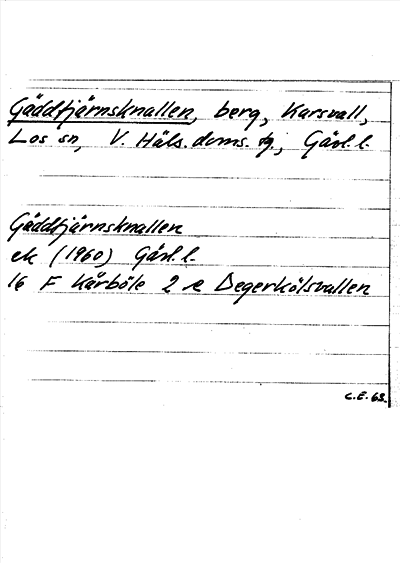 Gäddtjärnsknallen, berg, Karsvall,
Los sn, V. Häls. doms. tg., Gävl. l.
Gäddtjärnsknallen
ek (1960) Gävl. l.
16 F Kårböle 2 e Degerkölsvallen
C.E. 63.